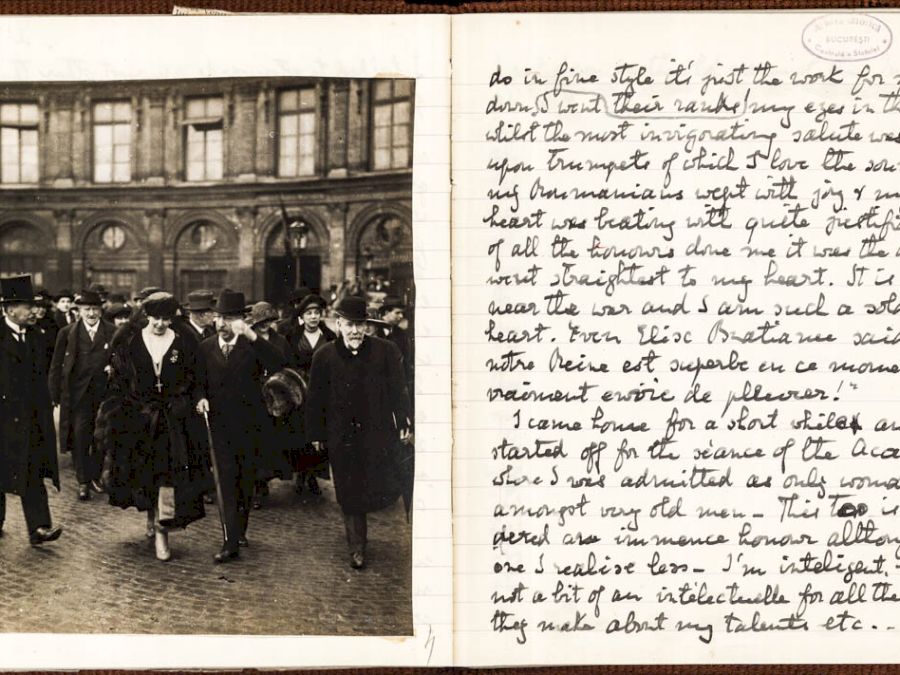 BUCUREȘTI
do in fine style it's just the work for
down, I went their ranks! my eyes in th
whilst the most invigorating salute was
upon trumpets of which I love the sou
my Roumanians wept with joy & m
heart was beating with quite justifi
of all the honours done me it was the
went straightest to my heart. It is
near the war and I am such a sold
heart. Even Elise Bratianu said
notre Reine est superbe en ce mome
vraiment envie de pleurer!"
I came home for a short while & an
started off for the séance of the Aca
where I was admitted as only woma
amongst very old men – This too is
dered an immence honour althou
one I realise less – I'm inteligent,
not a bit of an intélectuelle for all the
they make about my talents etc. –